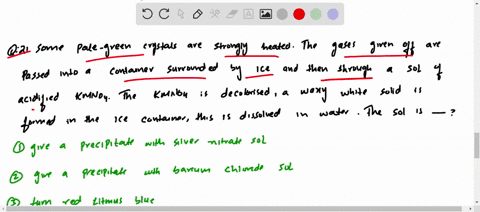 Q.21 Some Pale-green crystals are strongly heated. The gases given off are
Passed into a container surrounded by Ice and then through a sol of
acidified KMnO4. The KMnO4 is decolorised, a waxy white solid is
formed in the Ice container, this is dissolved in water. The sol is — ?
① give a precipitate with silver nitrate sol
② give a precipitate with barium chloride sol
③ turn red litmus blue